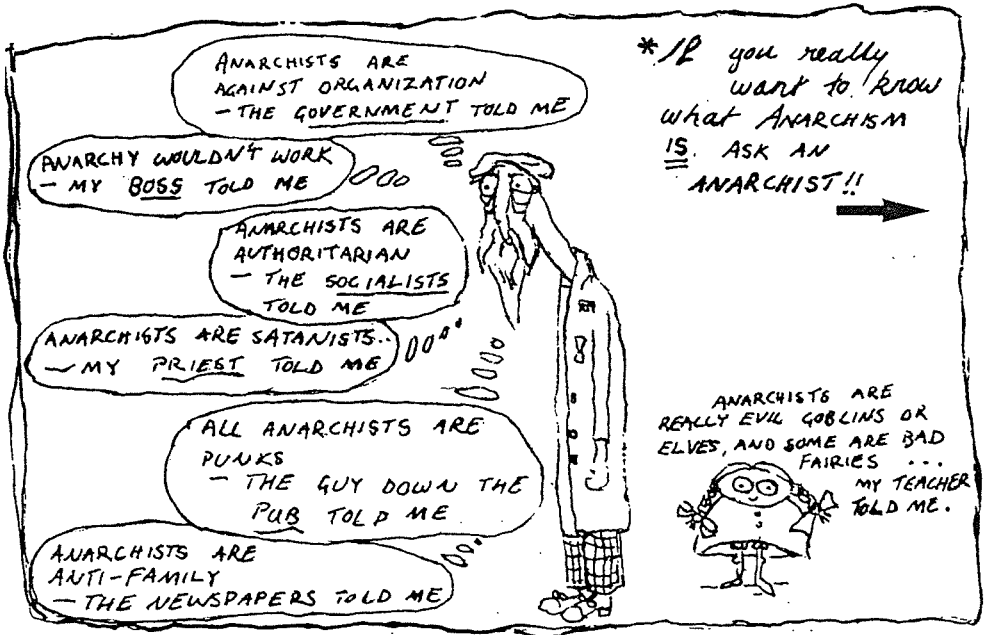 ANARCHISTS ARE
AGAINST ORGANIZATION
- THE GOVERNMENT TOLD ME
ANARCHY WOULDN'T WORK
- MY BOSS TOLD ME
ANARCHISTS ARE
AUTHORITARIAN
- THE SOCIALISTS
TOLD ME
ANARCHISTS ARE SATANISTS..
- MY PRIEST TOLD ME
ALL ANARCHISTS ARE
PUNKS
- THE GUY DOWN THE
PUB TOLD ME
ANARCHISTS ARE
ANTI-FAMILY
- THE NEWSPAPERS TOLD ME
* If you really
want to know
what ANARCHISM
IS. ASK AN
ANARCHIST!!
ANARCHISTS ARE
REALLY EVIL GOBLINS OR
ELVES, AND SOME ARE BAD
FAIRIES ...
MY TEACHER
TOLD ME.